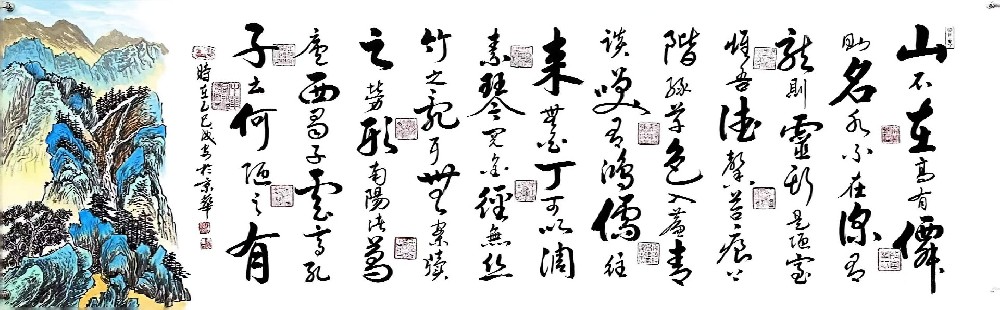 山不在高有僊
則名水不在深有
龍則靈斯是陋室
惟吾德馨苔痕上
階綠草色入簾青
談笑有鴻儒往
来無白丁可以调
素琴閲金經無丝
竹之亂耳無案牘
之勞形南陽诸葛
廬西蜀子雲亭孔
子云何陋之有
時在乙巳成安於京華